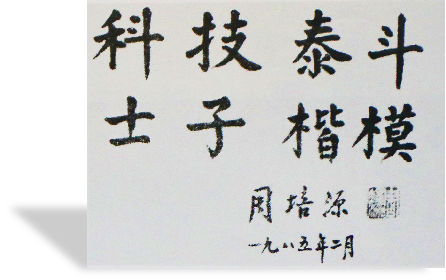 科技泰斗
士子楷模
周培源
一九八五年二月